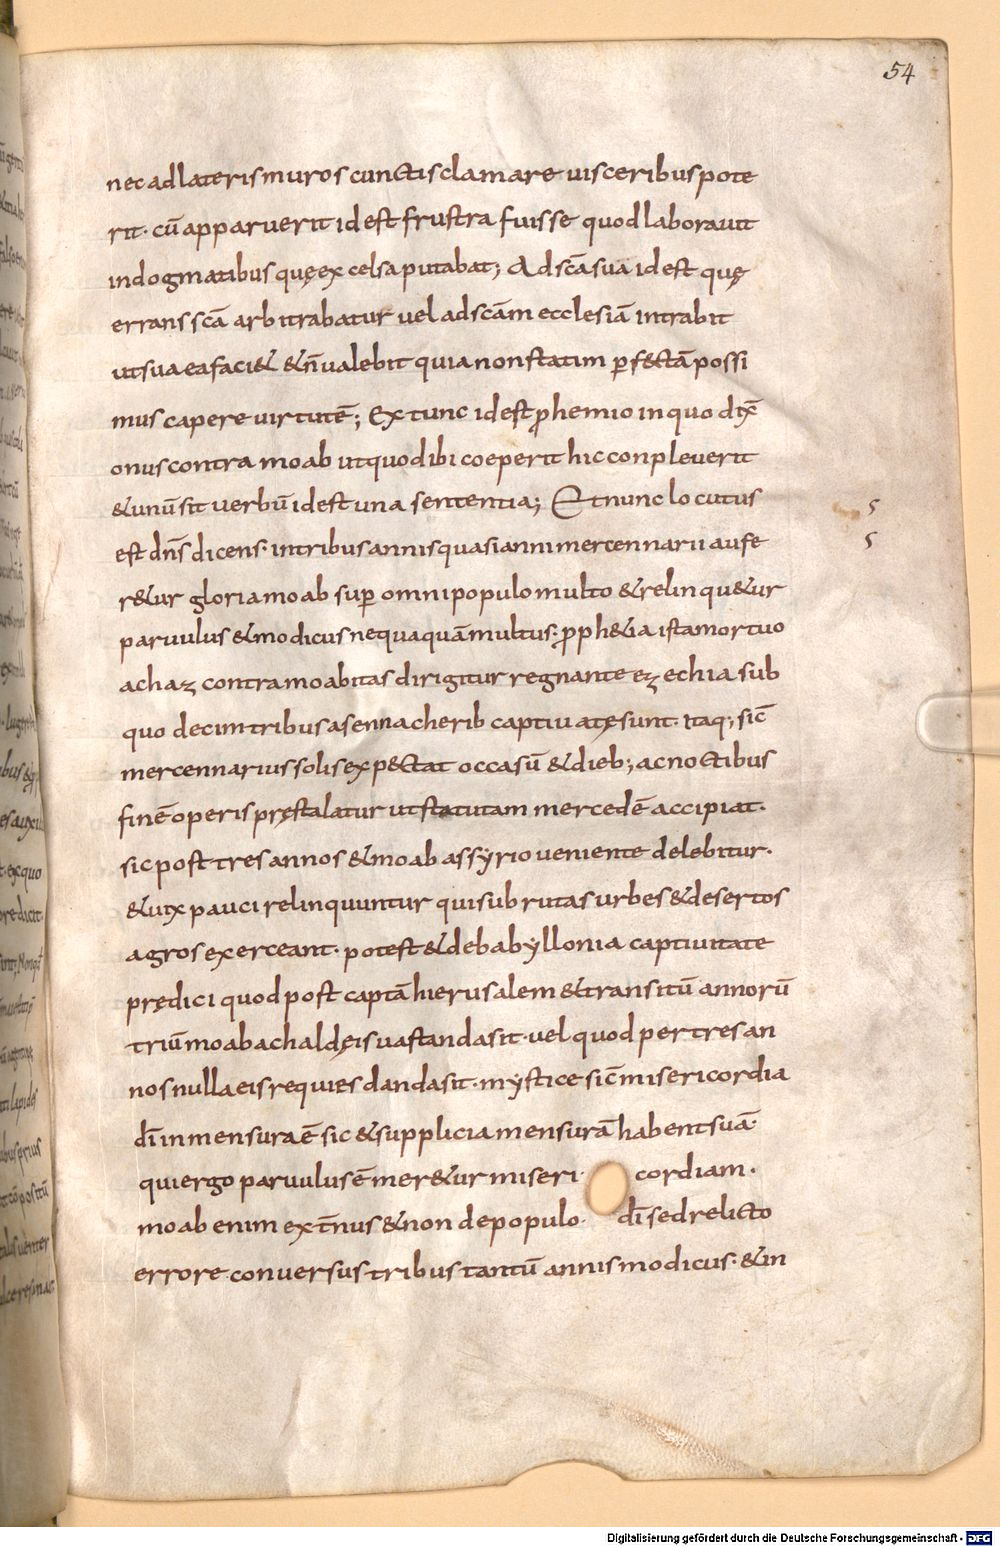 54
nec ad lateris muros cunctis clamare uisceribus pote
rit· cū apparuerit id est frustra fuisse quod laborauit
in dogmatibus quę excelsa putabat; Ad scā sua id est quę
errans scā arbitrabatur uel ad scām ecclesiā intrabit
ut sua ea faci& & n̄ ualebit quia non statim ꝑf&ctā possi
mus capere uirtutē; Ex tunc id est ꝓhemio in quo dix̄
onus contra moab ut quod ibi coeperit hic conpleuerit
& unū sit uerbū id est una sententia; Et nunc locutus
est dn̄s dicens· in tribus annis quasi anni mercennarii aufe
r&ur gloria moab suꝑ omni populo multo & relinqu&ur
paruulus & modicus nequaquā multus· ꝓph&ia ista mortuo
achaz contra moabitas dirigitur regnante ezechia sub
quo decim tribus a sennacherib captiuatę sunt· itaq; sic̄
mercennarius solis exp&ctat occasū & dieb; ac noctibus
finē operis pręstalatur ut statutam mercedē accipiat·
sic post tres annos & moab assyrio ueniente delebitur·
& uix pauci relinquuntur qui subrutas urbes & desertos
agros exerceant· potest & de babyllonia captiuitate
prędici quod post captā hierusalem & transitū annorū
triū moab a chaldęis uastanda sit· uel quod per tres an
nos nulla eis requies danda sit· mystice sic̄ misericordia
dī in mensura ē sic & supplicia mensurā habent suā·
qui ergo paruulus ē mer&ur miseri cordiam·
moab enim ext̄nus & non de populo· dī sed relicto
errore conuersus tribus tantū annis modicus· & in
s
s
Digitalisierung gefördert durch die Deutsche Forschungsgemeinschaft - DFG